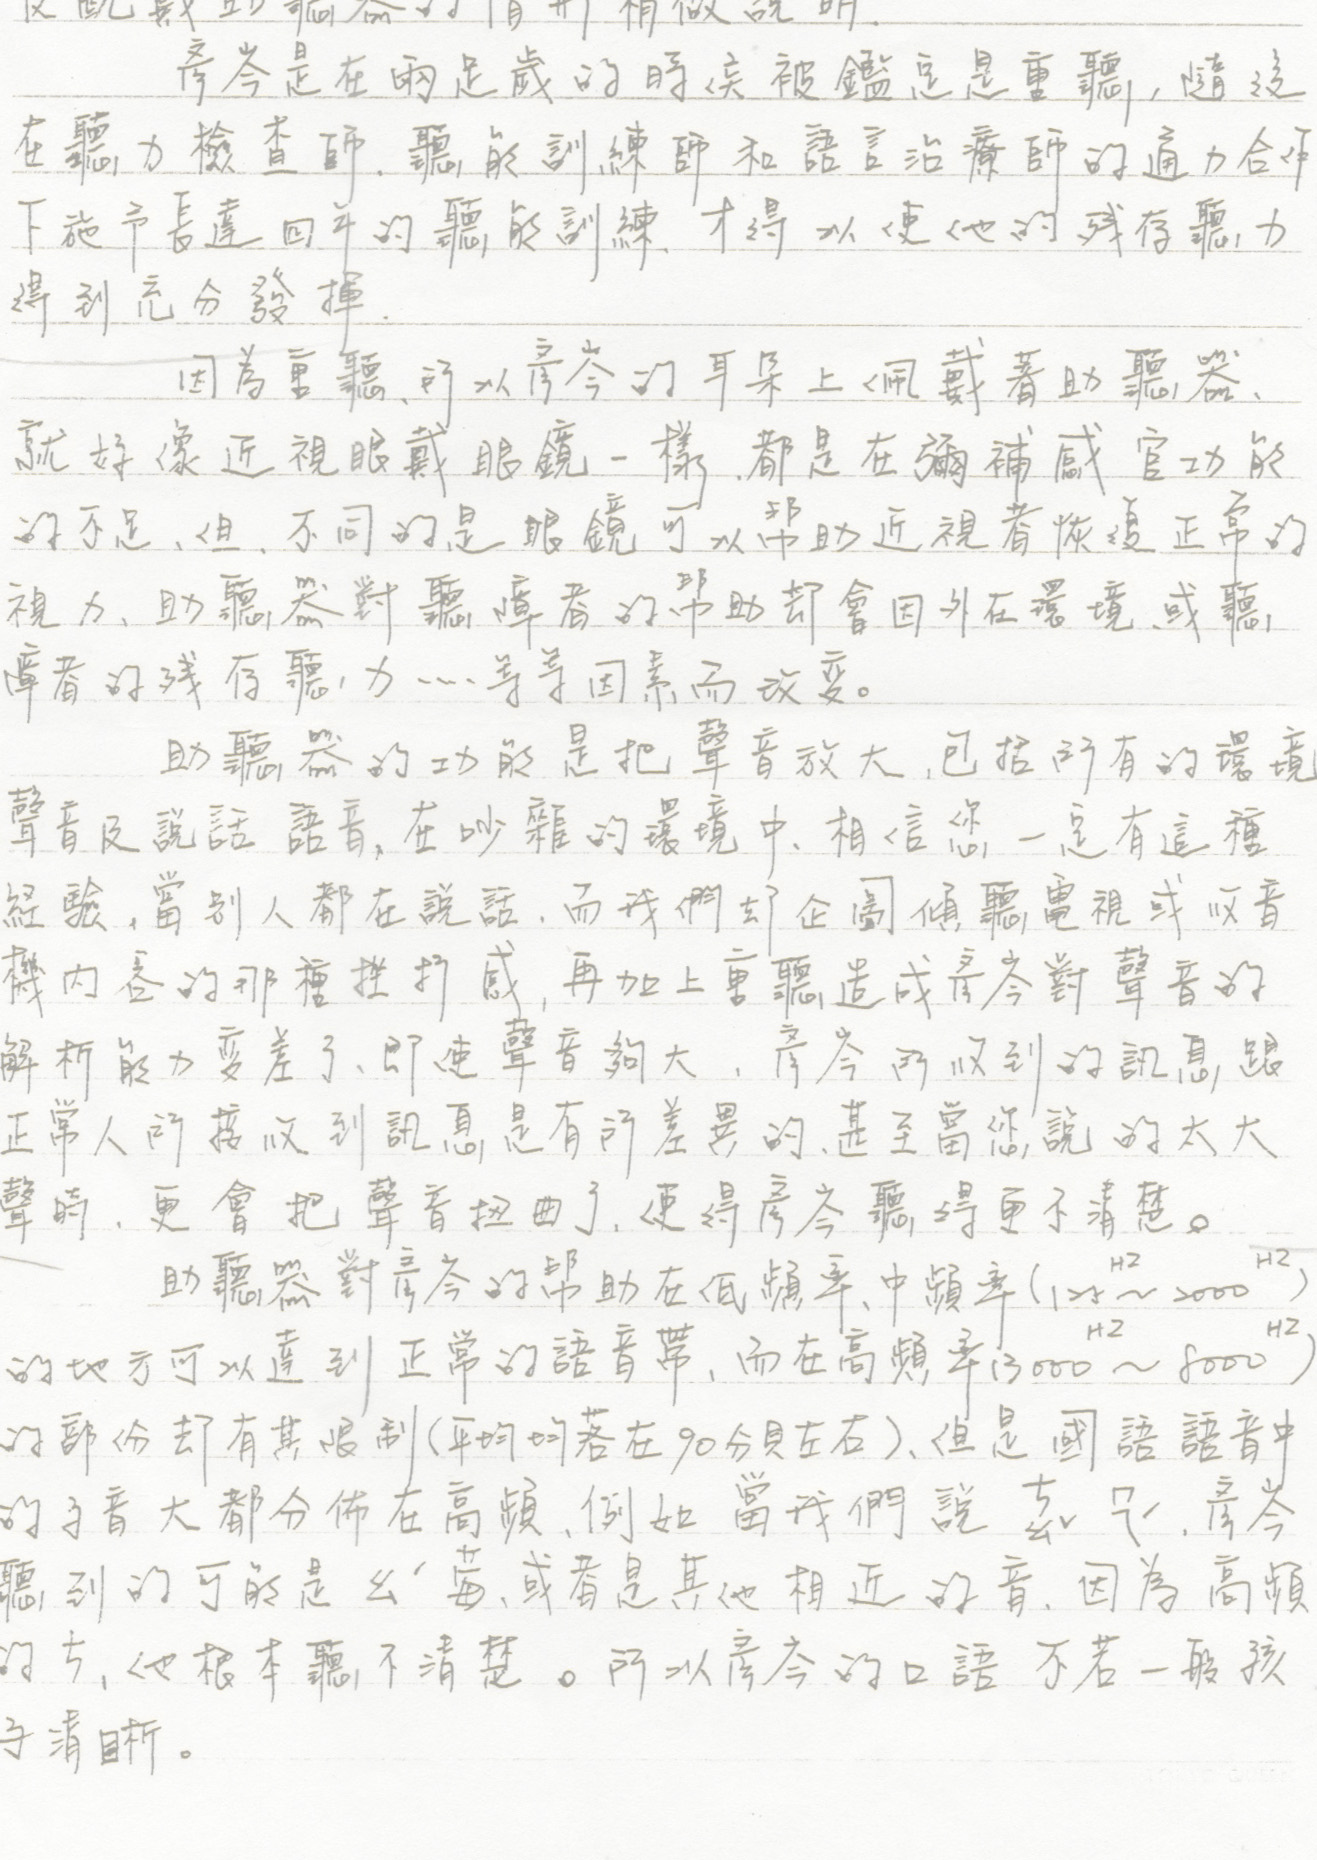 及配戴助聽器的情形稍做說明.
彥岑是在兩足歲的時侯被鑑定是重聽,隨後
在聽力檢查師.聽能訓練師和語言治療師的通力合作
下施予長達四年的聽能訓練.才得以使他的殘存聽力
得到充分發揮.
因為重聽、所以彥岑的耳朵上佩戴著助聽器、
就好像近視眼戴眼鏡一樣.都是在彌補感官功能
的不足、但、不同的是眼鏡可以幫助近視者恢復正常的
視力、助聽器對聽障者的幫助却會因外在環境、或聽
障者的殘存聽力……等等因素而改变。
助聽器的功能是把聲音放大,包括所有的環境
聲音及說話語音,在吵雜的環境中、相信您一定有這種
經驗,當別人都在說話.而我們却企圖傾聽電視或收音
機內容的那種挫折感,再加上重聽造成彥岑對聲音的
解析能力变差了、即使聲音夠大,彥岑所收到的訊息跟
正常人所接收到訊息是有所差異的、甚至當您說的太大
聲時、更會把聲音扭曲了,使得彥岑聽得更不清楚。
助聽器對彥岑的幫助在低頻率、中頻率(125HZ~2000HZ)
的地方可以達到正常的語音帶,而在高頻率(3000HZ~8000HZ)
的部份却有其限制(平均均落在90分貝左右)、但是國語語音中
的子音大都分佈在高頻、例如當我們說ㄘㄠˇ ㄇㄟˊ,彥岑
聽到的可能是ㄠˊ莓、或者是其他相近的音.因為高頻
的ㄘ,他根本聽不清楚。所以彥岑的口語不若一般孩
子清晰。